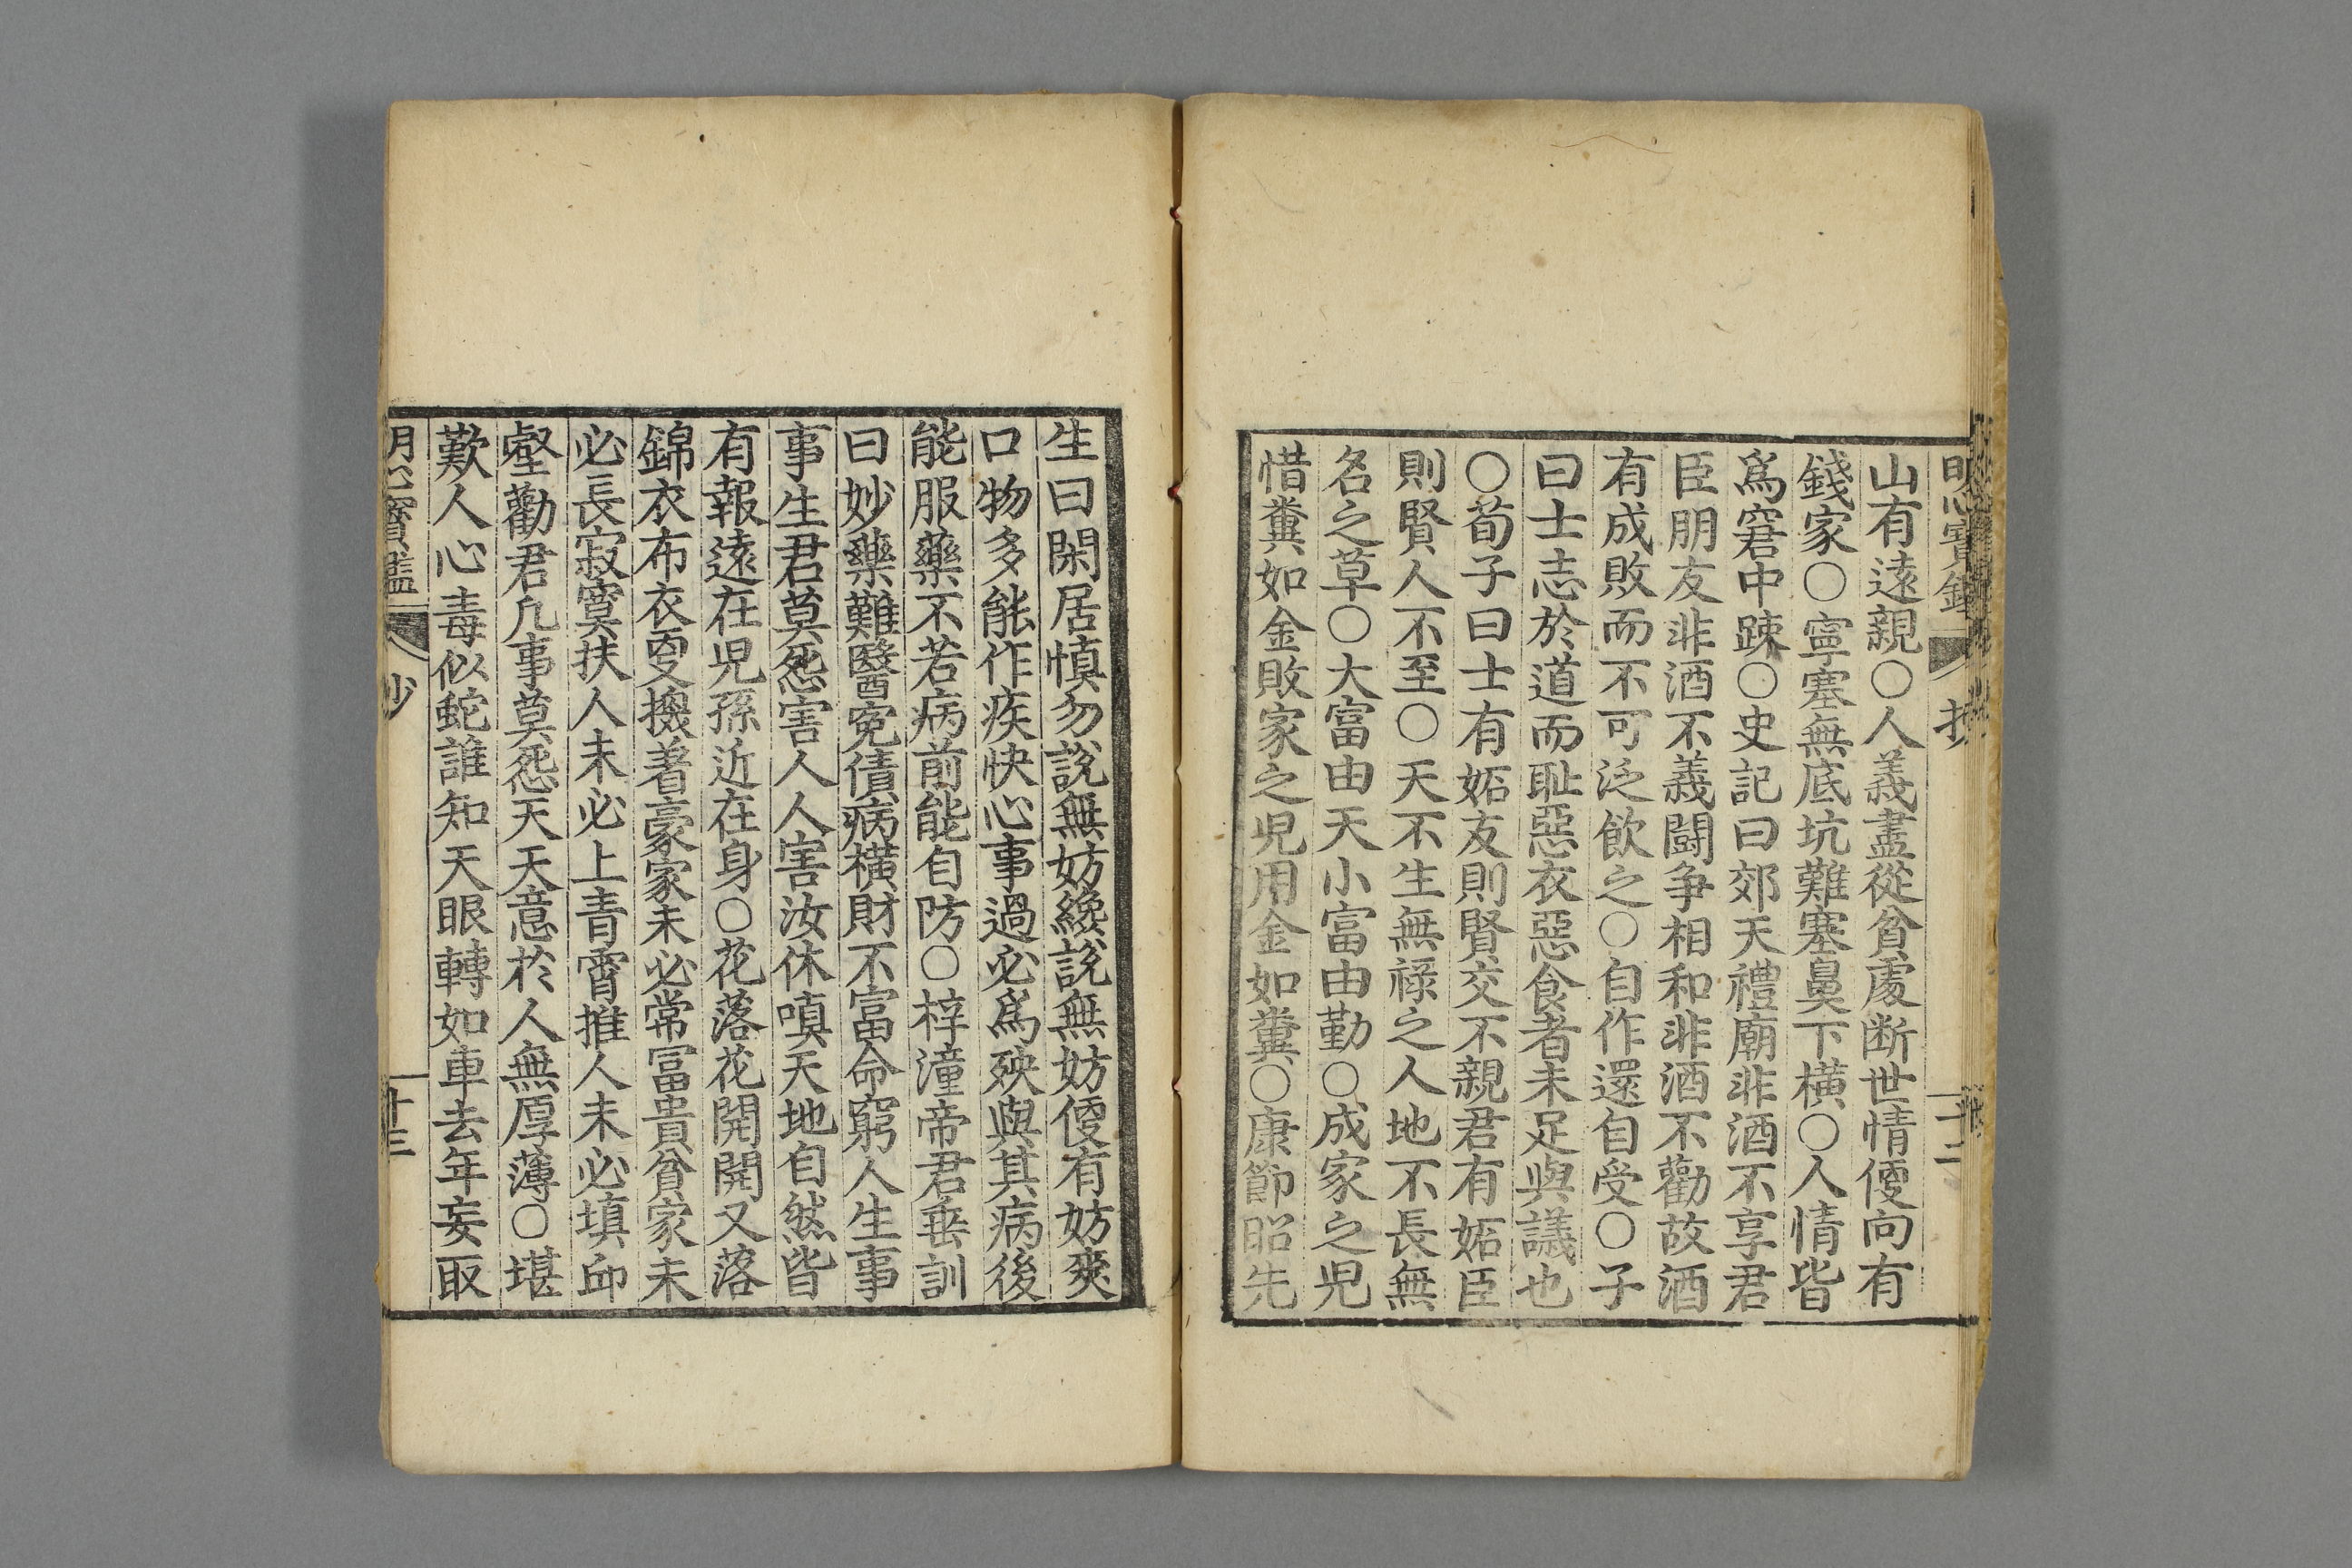 明心寶鑑 抄 十二
山有遠親○人義盡從貧處断世情便向有
錢家○寧塞無底坑難塞鼻下橫○人情皆
爲窘中踈○史記曰郊天禮廟非酒不享君
臣朋友非酒不義闘争相和非酒不勸故酒
有成敗而不可泛飮之○自作還自受○子
曰士志於道而耻惡衣惡食者未足與議也
○荀子曰士有妬友則賢交不親君有妬臣
則賢人不至○天不生無祿之人地不長無
名之草○大富由天小富由勤○成家之児
惜糞如金敗家之児用金如糞○康節昭先
生曰閑居愼勿說無妨纔說無妨便有妨爽
口物多能作疾快心事過必爲殃與其病後
能服藥不若病前能自防○梓潼帝君垂訓
曰妙藥難醫寃債病橫財不富命窮人生事
事生君莫怨害人人害汝休嗔天地自然皆
有報遠在児孫近在身○花落花開開又落
錦衣布衣更換着豪家未必常冨貴貧家未
必長寂寞扶人未必上青霄推人未必塡邱
壑勸君凡事莫怨天天意於人無厚薄○堪
歎人心毒似蛇誰知天眼轉如車去年妄取
明心寶鑑 抄 十三